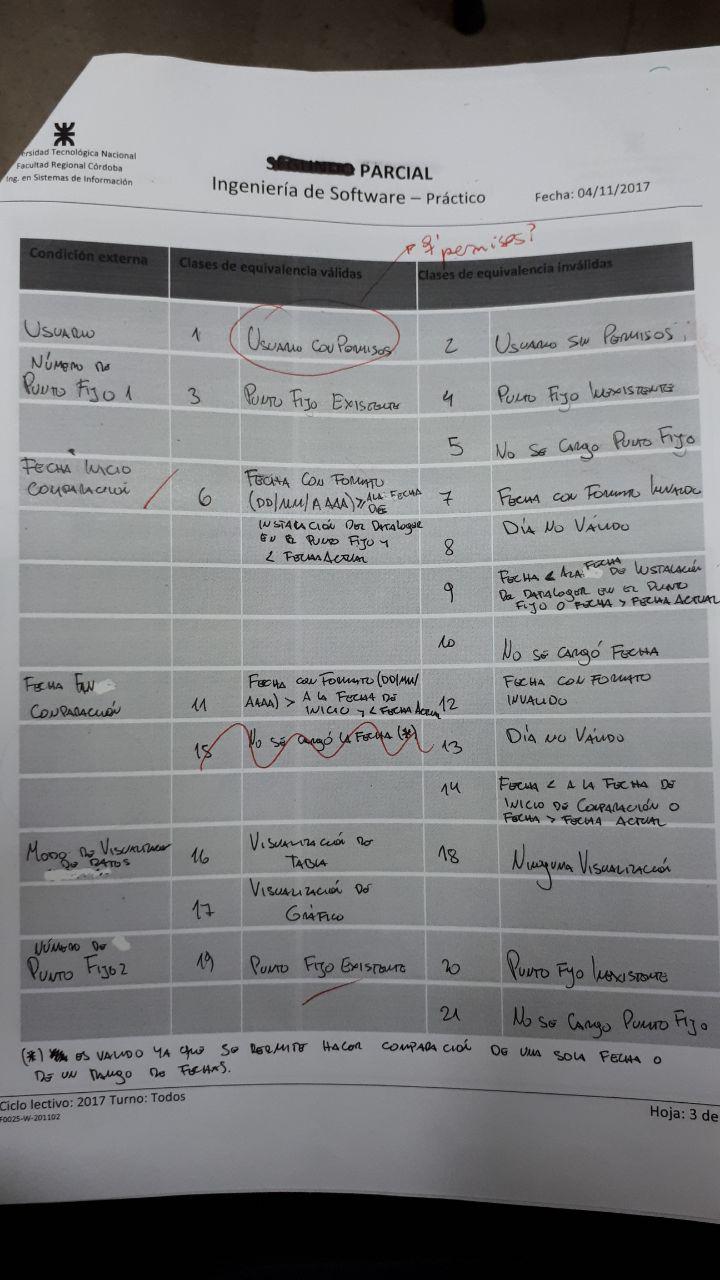 ersidad Tecnológica Nacional
Facultad Regional Córdoba
Ing. en Sistemas de Información
PARCIAL
Ingeniería de Software – Práctico
Fecha: 04/11/2017
permisos?
Condición externa
Clases de equivalencia válidas
Clases de equivalencia inválidas
USUARIO
1
USUARIO CON PERMISOS
2
USUARIO SIN PERMISOS
NÚMERO DE
PUNTO FIJO 1
3
PUNTO FIJO EXISTENTE
4
PUNTO FIJO INEXISTENTE
5
NO SE CARGO PUNTO FIJO
FECHA INICIO
COMPARACIÓN
6
FECHA CON FORMATO
(DD/MM/AAAA) >= A LA FECHA
DE
INSTALACIÓN DEL DATALOGER
EN EL PUNTO FIJO Y
< FECHA ACTUAL
7
FECHA CON FORMATO INVALIDO
8
DÍA NO VÁLIDO
9
FECHA < A LA FECHA DE INSTALACIÓN
DEL DATALOGER EN EL PUNTO
FIJO O FECHA > FECHA ACTUAL
10
NO SE CARGÓ FECHA
FECHA FIN
COMPARACIÓN
11
FECHA CON FORMATO (DD/MM/
AAAA) > A LA FECHA DE
INICIO Y < FECHA ACTUAL
12
FECHA CON FORMATO
INVALIDO
15
NO SE CARGÓ LA FECHA (*)
13
DÍA NO VÁLIDO
14
FECHA < A LA FECHA DE
INICIO DE COMPARACIÓN O
FECHA > FECHA ACTUAL
MODO DE VISUALIZACIÓN
DE DATOS
16
VISUALIZACIÓN DE
TABLA
18
NINGUNA VISUALIZACIÓN
17
VISUALIZACIÓN DE
GRÁFICO
NÚMERO DE
PUNTO FIJO 2
19
PUNTO FIJO EXISTENTE
20
PUNTO FIJO INEXISTENTE
21
NO SE CARGO PUNTO FIJO
(*) ES VALIDO YA QUE SE PERMITE HACER COMPARACIÓN DE UNA SOLA FECHA O
DE UN RANGO DE FECHAS.
Ciclo lectivo: 2017 Turno: Todos
F0025-W-201102
Hoja: 3 de